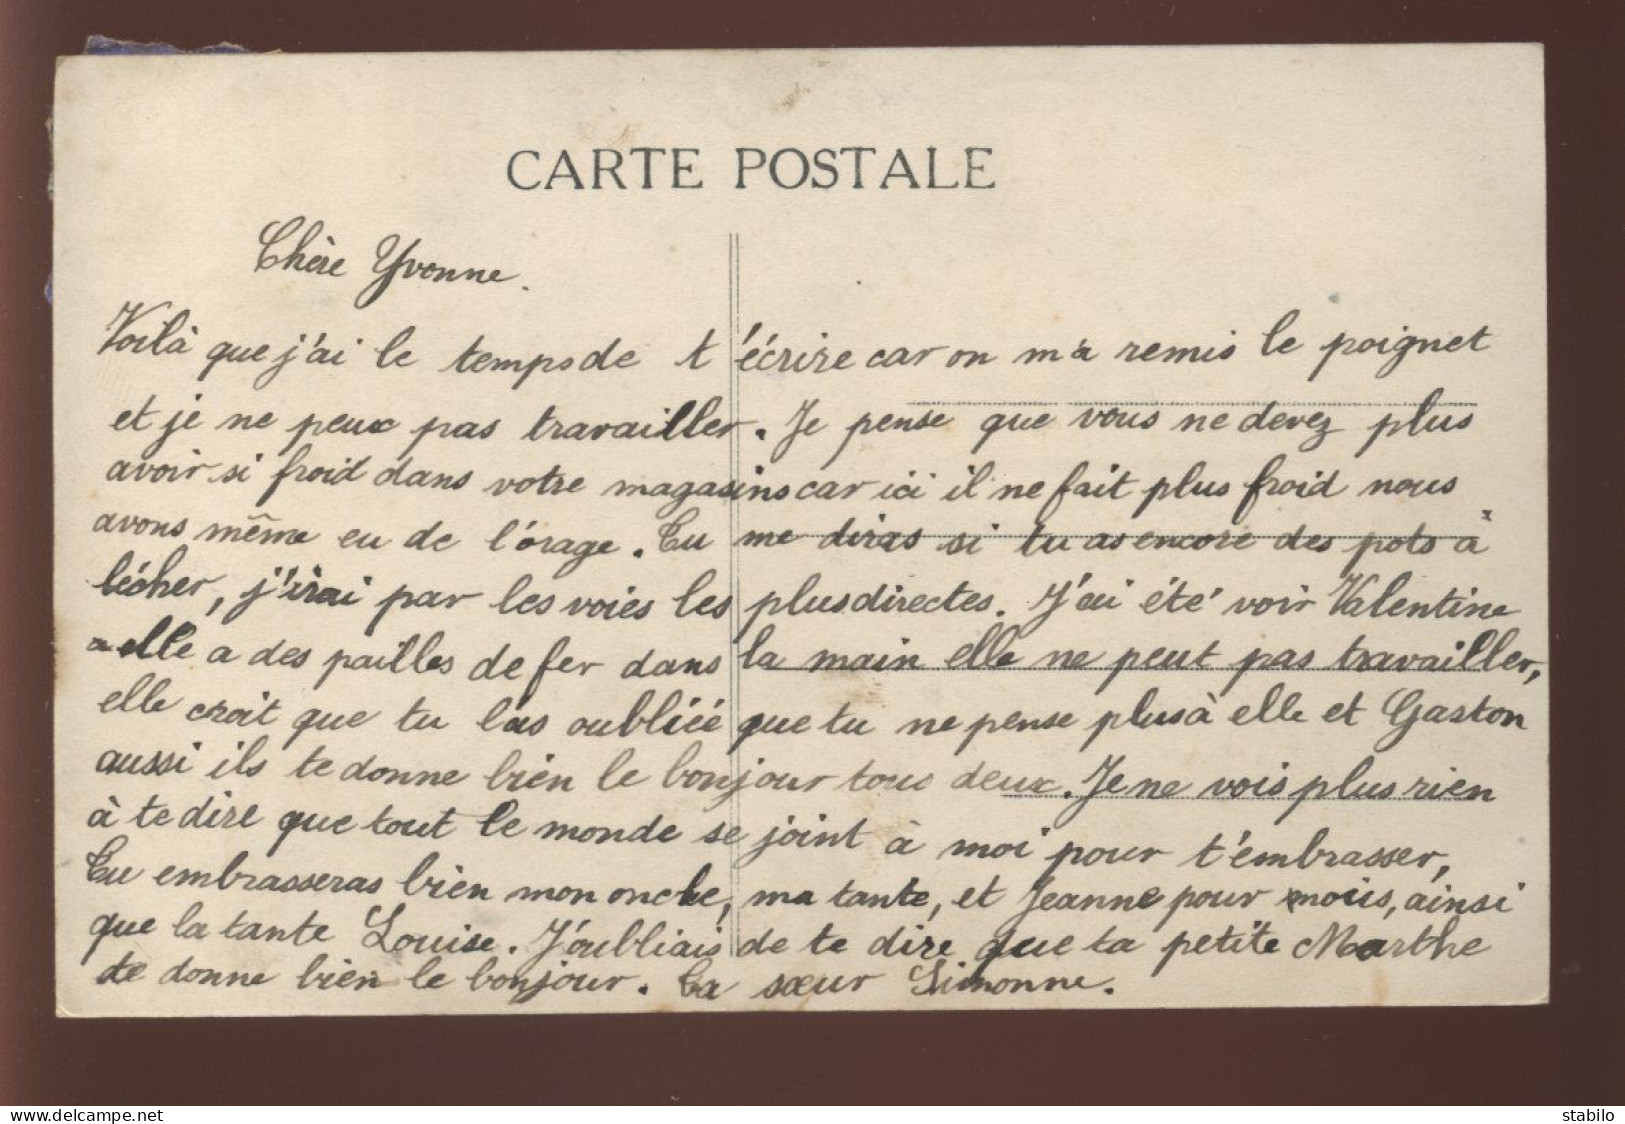 CARTE POSTALE
Chère Yvonne.
Voilà que j'ai le temps de t'écrire car on m'a remis le poignet
et je ne peux pas travailler. Je pense que vous ne devez plus
avoir si froid dans votre magasins car ici il ne fait plus froid nous
avons même eu de l'orage. Tu me diras si tu as encore des pots à
lécher, j'irai par les voies les plus directes. J'ai été voir Valentine
elle a des pailles de fer dans la main elle ne peut pas travailler,
elle croit que tu l'as oubliée que tu ne pense plus à elle et Gaston
aussi ils te donne bien le bonjour tous deux. Je ne vois plus rien
à te dire que tout le monde se joint à moi pour t'embrasser,
Tu embrasseras bien mon oncle, ma tante, et Jeanne pour nous, ainsi
que la tante Louise. J'oubliais de te dire que ta petite Marthe
te donne bien le bonjour. Ta sœur Simonne.
delcampe.net
stabilo